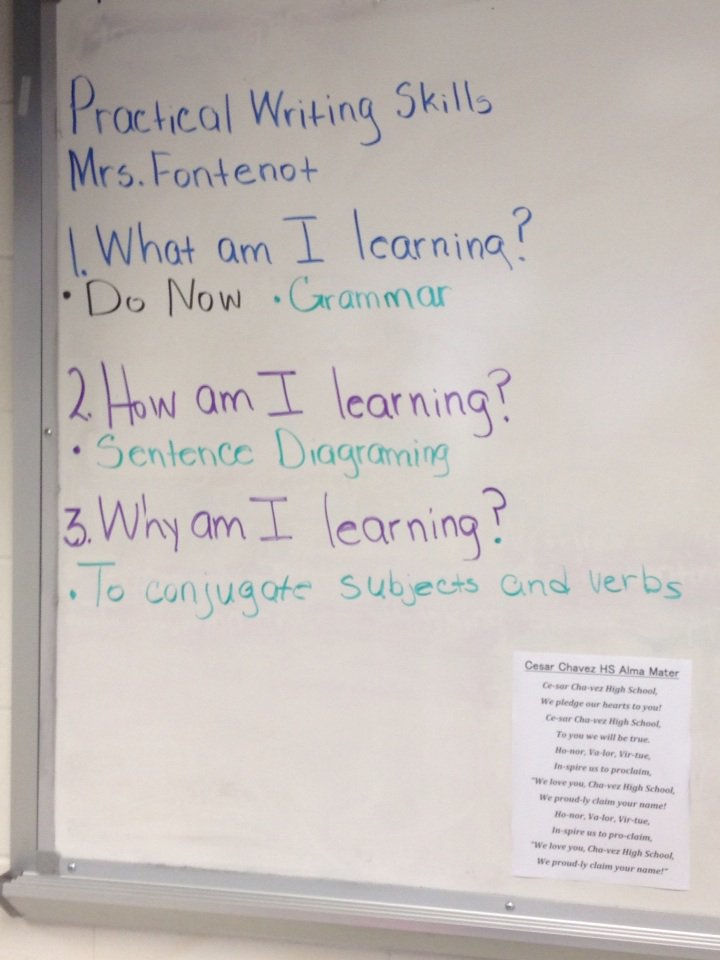 Practical Writing Skills
Mrs. Fontenot
1. What am I learning?
• Do Now • Grammar
2. How am I learning?
• Sentence Diagraming
3. Why am I learning?
• To conjugate subjects and verbs
Cesar Chavez HS Alma Mater
Ce-sar Cha-vez High School,
We pledge our hearts to you!
Ce-sar Cha-vez High School,
To you we will be true.
Ho-nor, Va-lor, Vir-tue,
In-spire us to proclaim,
"We love you, Cha-vez High School,
We proud-ly claim your name!
Ho-nor, Va-lor, Vir-tue,
In-spire us to pro-claim,
"We love you, Cha-vez High School,
We proud-ly claim your name!"